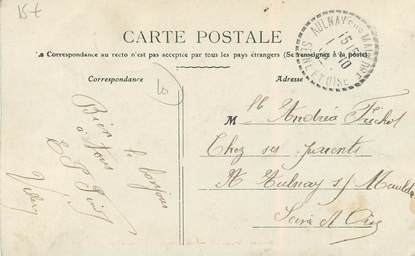 15 t
CARTE POSTALE
Correspondance au recto n'est pas acceptée par tous les pays étrangers (Se renseigner à la poste)
Correspondance
Adresse
AULNAY SUR MAULDRE
15
10
SEINE-ET-OISE
Bien le bonjour
à tous
M
Andréa
Chez ses parents
A Aulnay s/ Mauldre
Seine et Oise